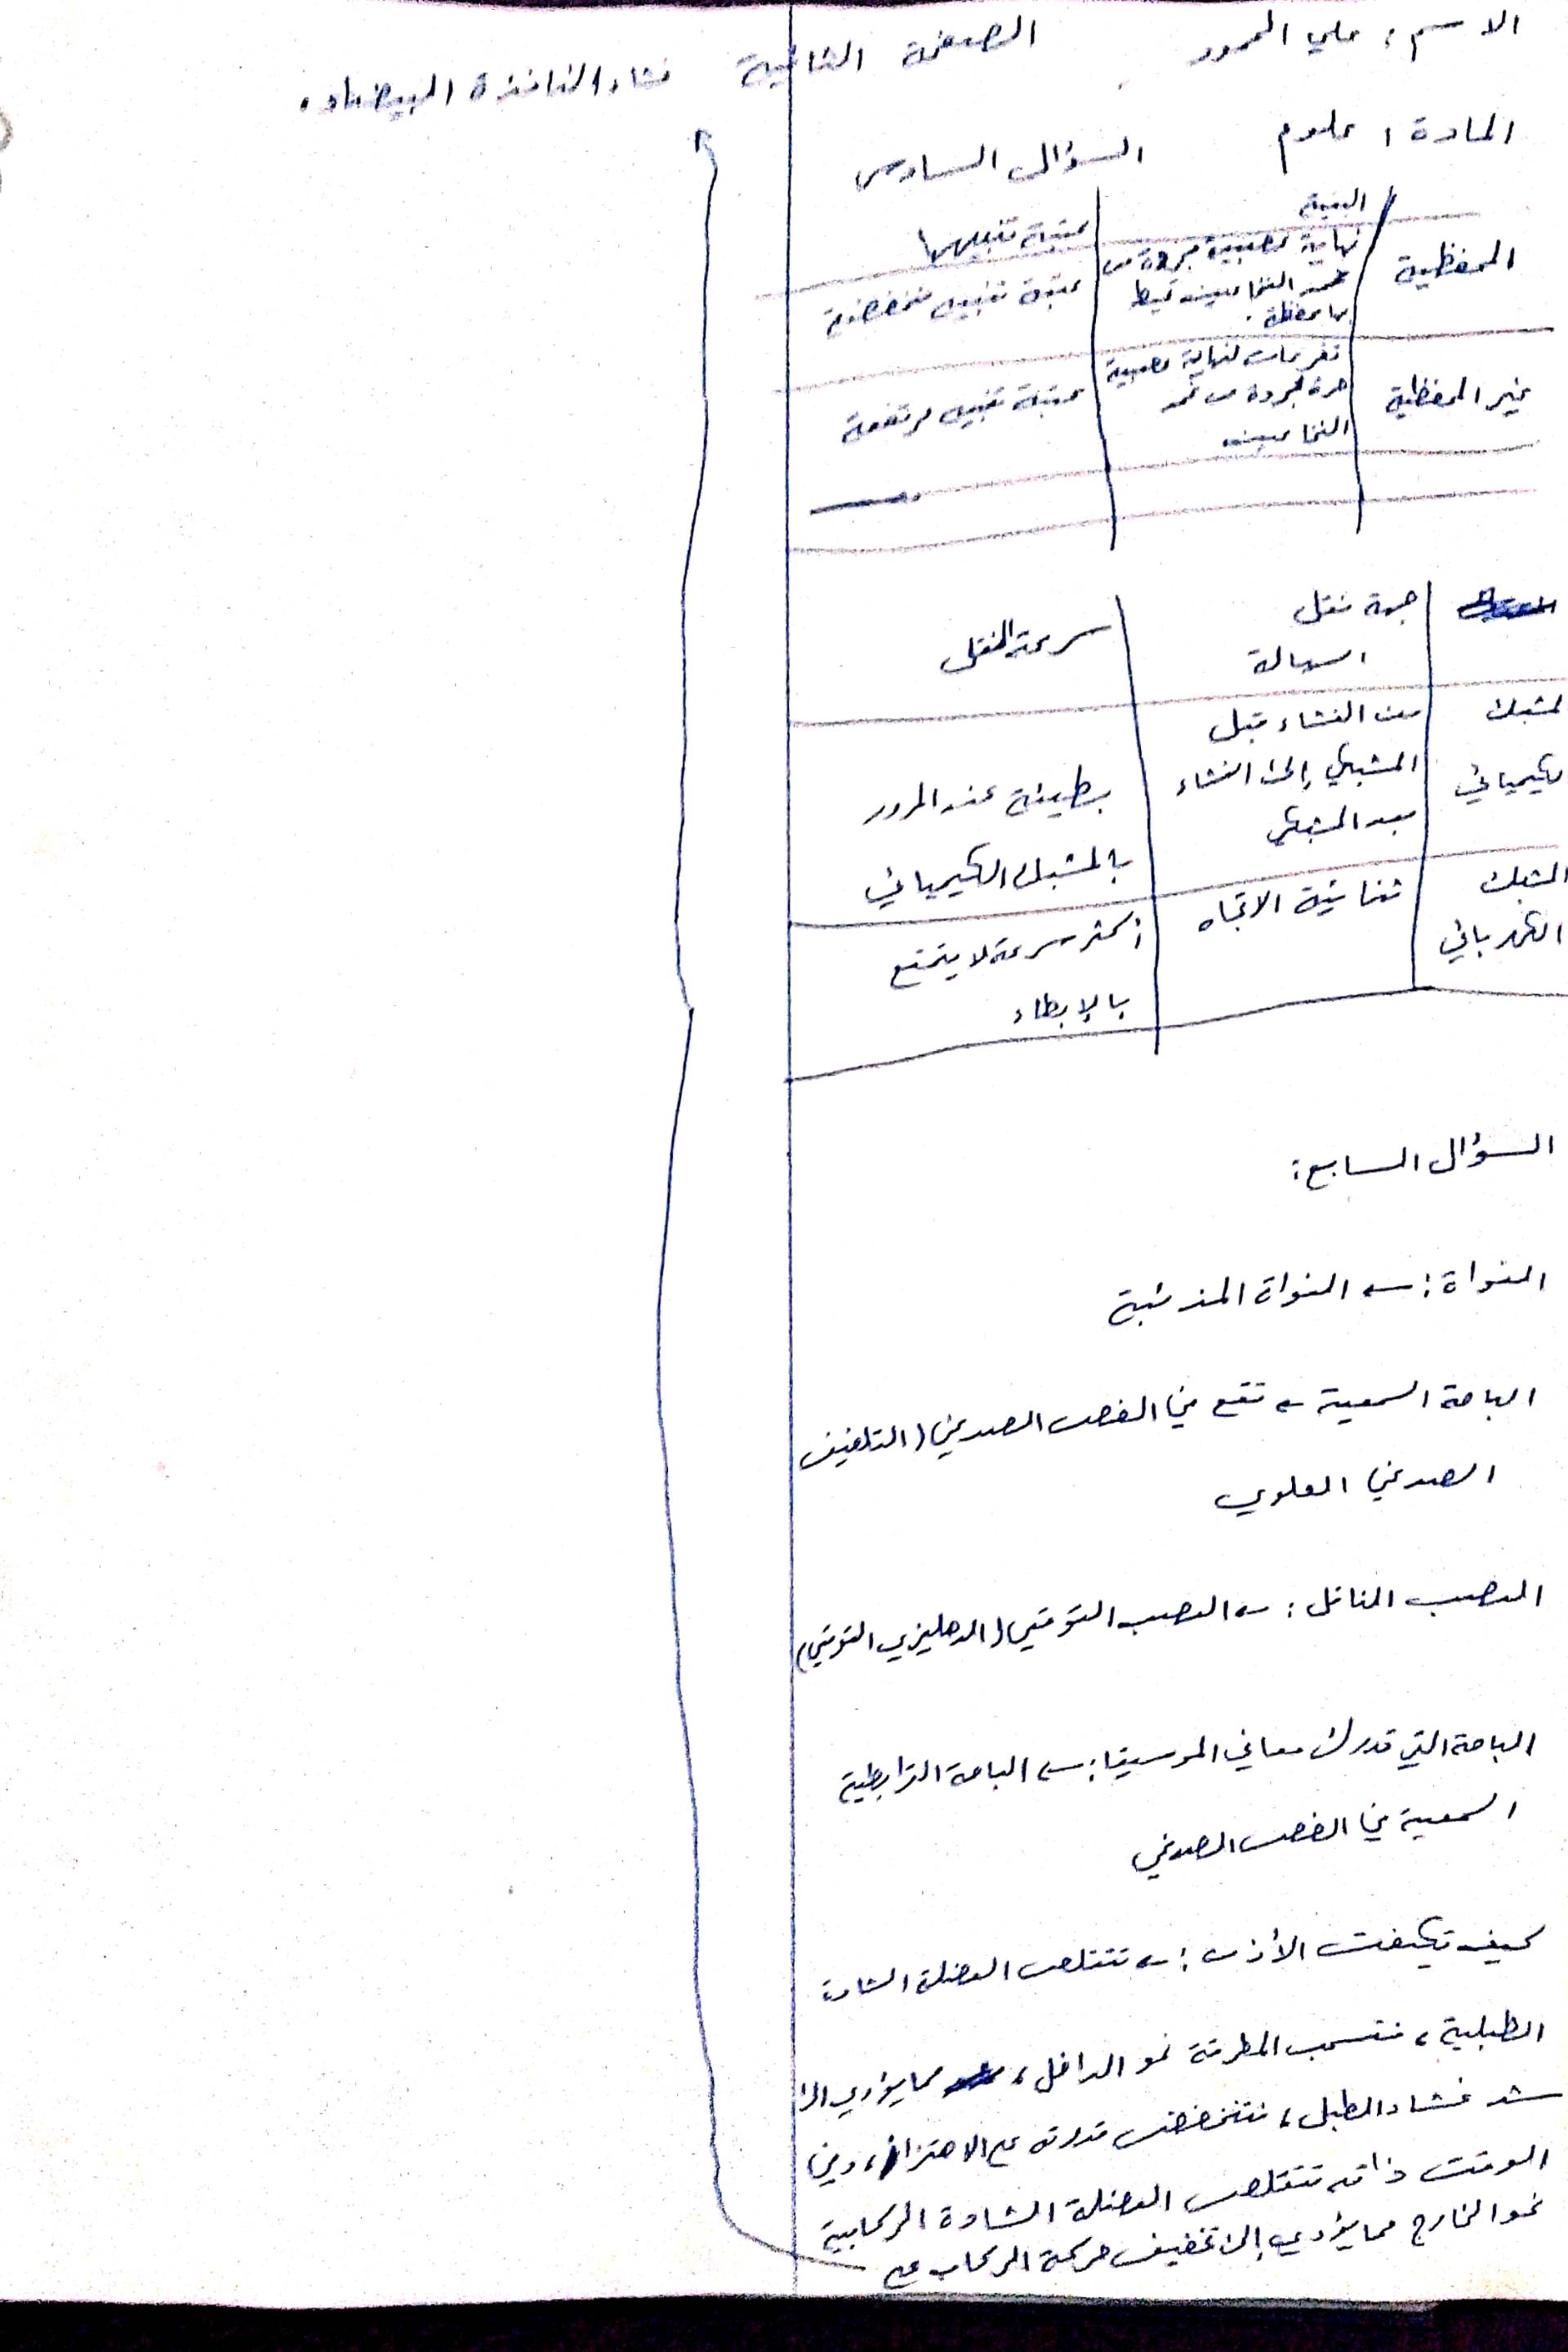 الاسم: علي المحمود
الصفحة الثانية
المادة: علوم
السؤال السادس
البنية
عتبة تنبيهها
المحفظية
نهاية عصبية مجردة من
غمد النخاعين تحيط
بها محفظة.
عتبة تنبيه منخفضة
غير المحفظية
تفرعات لنهاية عصبية
حرة مجردة من غمد
النخاعين
عتبة تنبيه مرتفعة
جهة نقل
السيالة
سرعة النقل
المشبك
الكيميائي
من الغشاء قبل
المشبكي إلى الغشاء
بعد المشبكي
بطيئة عند المرور
بالمشبك الكيميائي
المشبك
الكهربائي
ثنائية الاتجاه
أكثر سرعة لا يتمتع
بالإبطاء
السؤال السابع:
النواة: ← النواة المذنبة
الباحة السمعية ← تقع في الفص الصدغي (التلفيف
الصدغي العلوي
العصب الناقل: ← العصب القوقعي (الدهليزي القوقعي)
الباحة التي تدرك معاني الموسيقا: ← الباحة الترابطية
السمعية في الفص الصدغي
كيف تكيفت الأذن: ← تتقلص العضلة الشادة
الطبلية، فتسحب المطرقة نحو الداخل، مما يؤدي الى
شد غشاء الطبل، فتنخفض قدرته على الاهتزاز، وفي
الوقت ذاته تتقلص العضلة الشادة الركابية
نحو الخارج مما يؤدي إلى تخفيف حركة الركاب على
غشاء النافذة البيضاء.